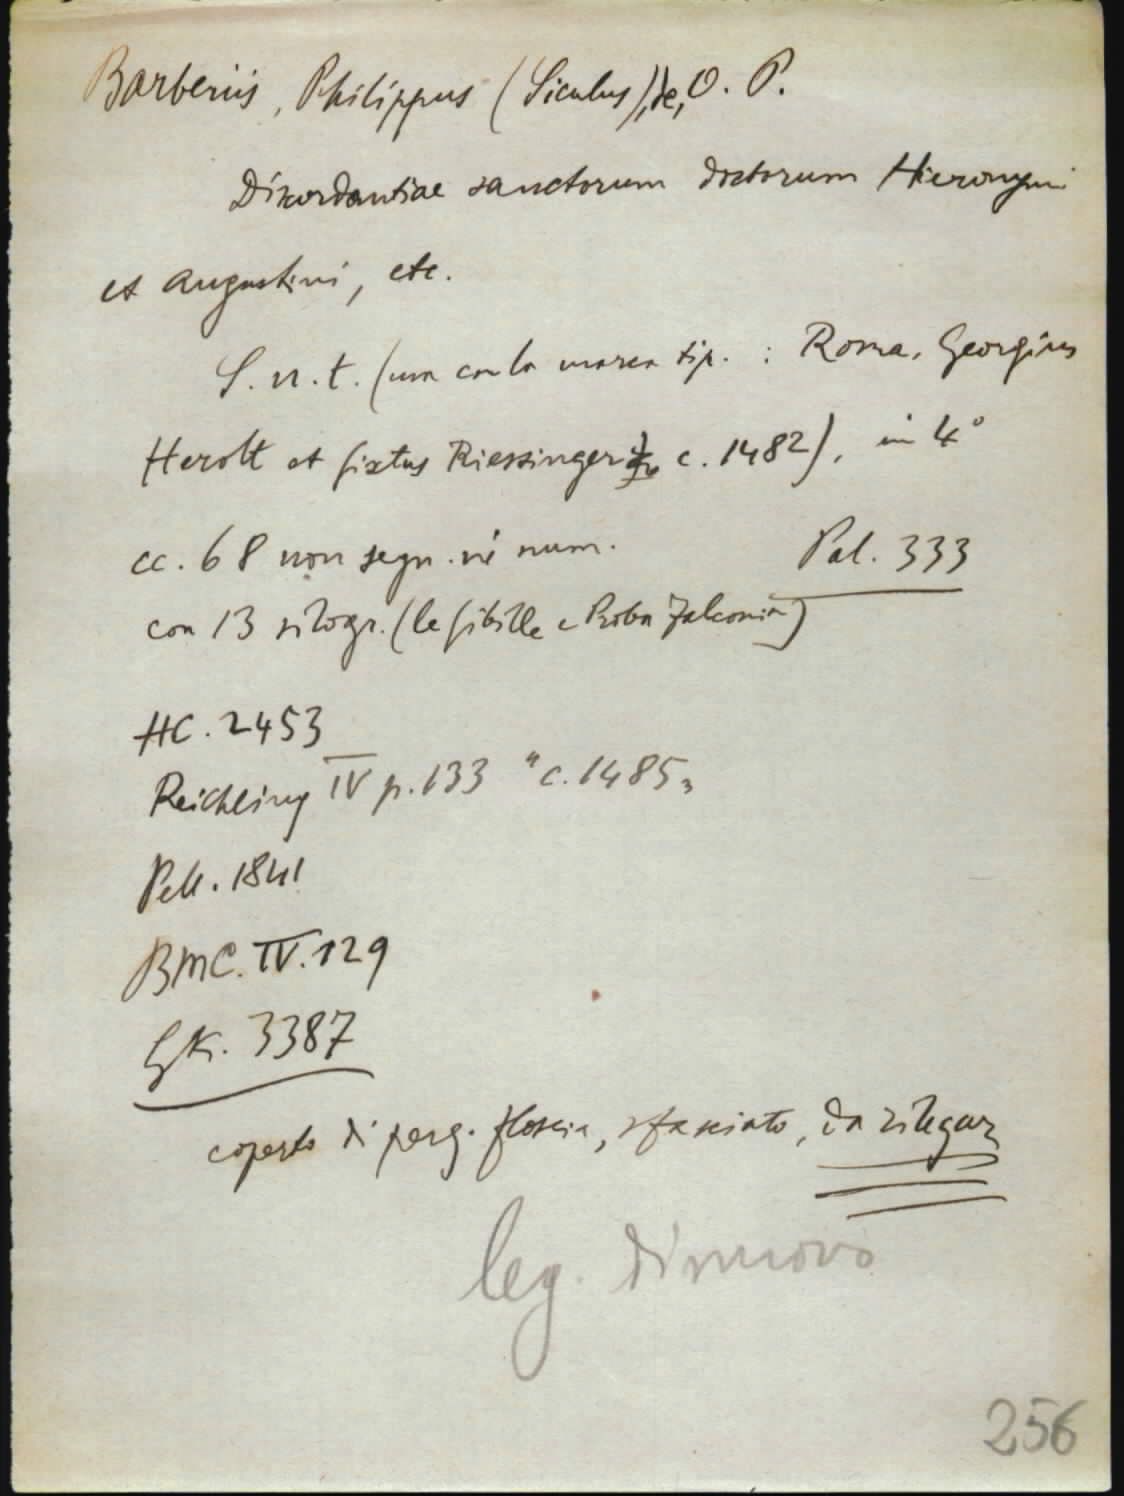 Barberiis, Philippus (Siculus), de, O. P.
Discordantiae sanctorum doctorum Hieronymi
et Augustini, etc.
S. n. t. (ma con la marca tip. : Roma, Georgius
Herolt et Sixtus Riessinger, c. 1482), in 4°
cc. 68 non segn. né num.
Pal. 333
con 13 silogr. (le sibille e Proba Falconia)
HC. 2453
Reichling IV p. 133 "c. 1485"
Pell. 1841
BMC. IV. 129
GK. 3387
coperto di perg. floscia, sfasciato, da rilegare
leg. di nuovo
256